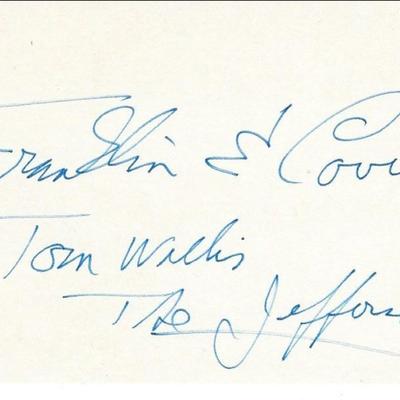 Franklin E Cov
Tom Willis
The Jeffers